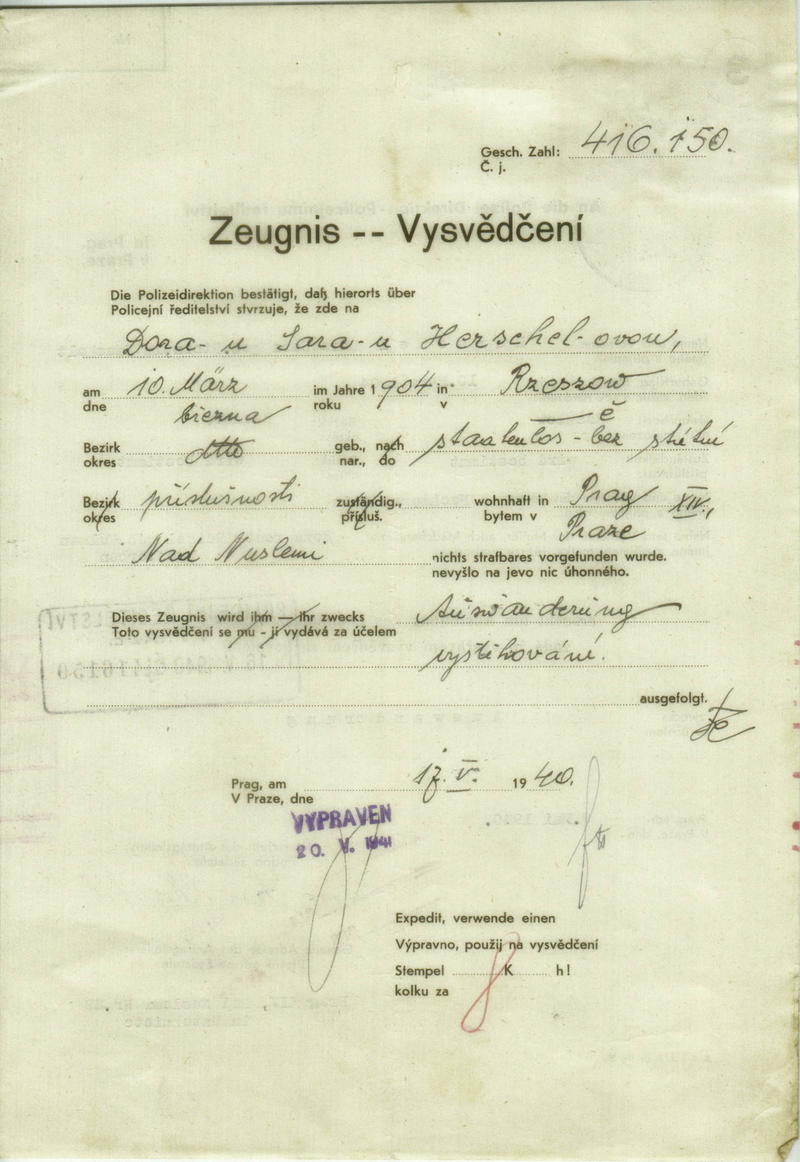 Gesch. Zahl: 416.150.
Č. j.
Zeugnis -- Vysvědčení
Die Polizeidirektion bestätigt, daß hierorts über
Policejní ředitelství stvrzuje, že zde na
Dora-u Sara-u Herschel-ovou,
am 10. März im Jahre 1904 in Rzeszow
dne března roku v ě
Bezirk geb., nach staatenlos - bez státní
okres nar., do
Bezirk příslušnosti zuständig., wohnhaft in Prag XIV.,
okres přísluš. bytem v Praze
Nad Nuslemi nichts strafbares vorgefunden wurde.
nevyšlo na jevo nic úhonného.
Dieses Zeugnis wird ihm — ihr zwecks Auswanderung
Toto vysvědčení se mu - jí vydává za účelem
vystěhování.
ausgefolgt.
Prag, am 17. V. 1940.
V Praze, dne
VYPRAVEN
20. V. 1941
Expedit, verwende einen
Výpravno, použij na vysvědčení
Stempel K h!
kolku za 8